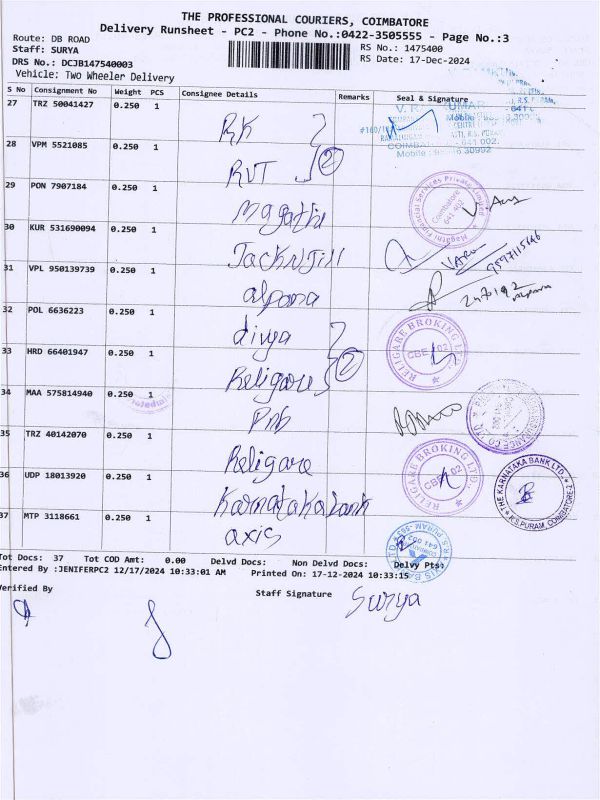 THE PROFESSIONAL COURIERS, COIMBATORE
Delivery Runsheet - PC2 - Phone No.:0422-3505555 - Page No.:3
Route: DB ROAD
Staff: SURYA
DRS No.: DCJB147540003
Vehicle: Two Wheeler Delivery
RS No.: 1475400
RS Date: 17-Dec-2024
S No Consignment No Weight PCS Consignee Details Remarks Seal & Signature
27 TRZ 50041427 0.250 1 RK
28 VPM 5521085 0.250 1 RVT 2
29 PON 7907184 0.250 1 Magathi
30 KUR 531690094 0.250 1 JacknJill
31 VPL 950139739 0.250 1 alpana
32 POL 6636223 0.250 1 divya
33 HRD 66401947 0.250 1 Religare 2
34 MAA 575814940 0.250 1 Pnb
35 TRZ 40142070 0.250 1 Religare
36 UDP 18013920 0.250 1 Karnataka bank
37 MTP 3118661 0.250 1 axis
COIMBATORE - 641 002.
Magathi Financial Services Private Limited
Coimbatore
641 402
RELIGARE BROKING LTD.
RELIGARE BROKING LTD.
THE KARNATAKA BANK LTD.
R.S.PURAM, COIMBATORE-2
Tot Docs: 37 Tot COD Amt: 0.00 Delvd Docs: Non Delvd Docs: Delvy Pts:
Entered By :JENIFERPC2 12/17/2024 10:33:01 AM Printed On: 17-12-2024 10:33:15
Verified By
Staff Signature Surya